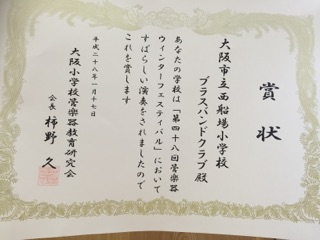 賞状
大阪市立西船場小学校
ブラスバンドクラブ殿
あなたの学校は「第四十八回管楽器
ウィンターフェスティバル」において
すばらしい演奏をされましたので
これを賞します
平成二十八年一月十七日
大阪小学校管楽器教育研究会
会長 柿野 久